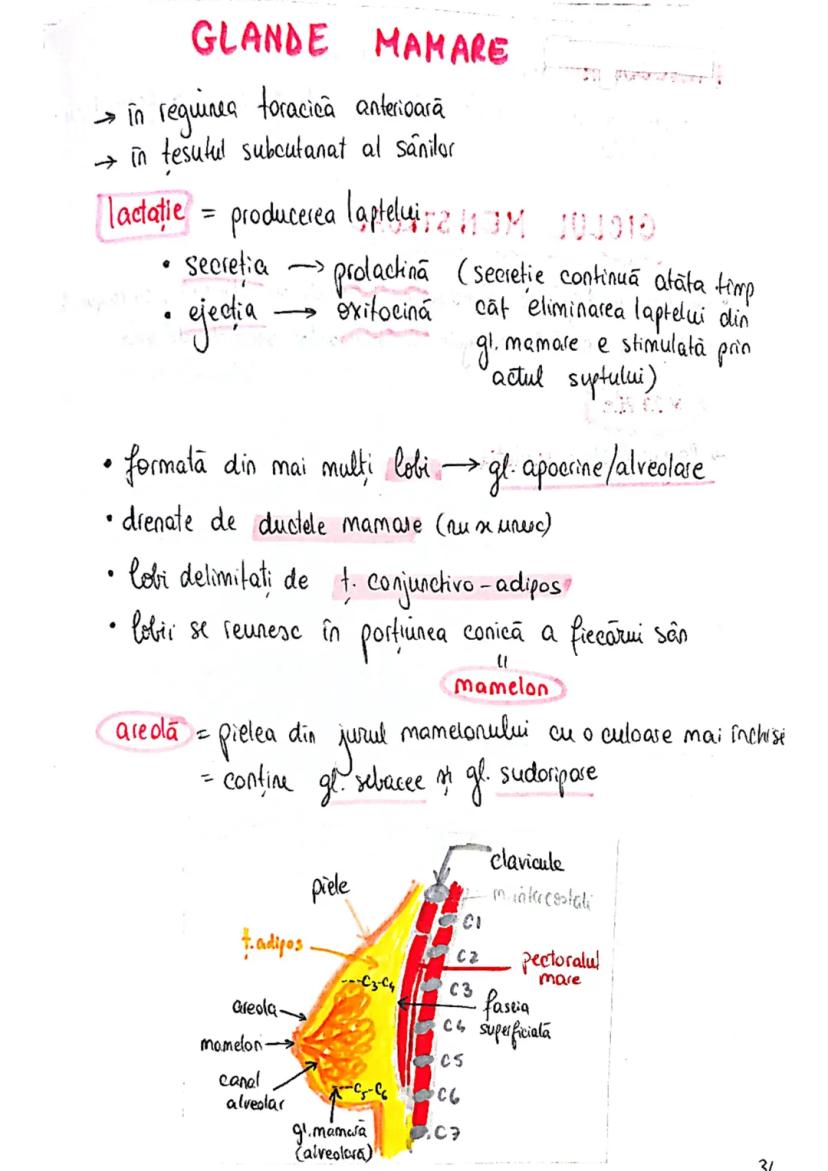 GLANDE MAMARE
→ în regiunea toracică anterioară
→ în țesutul subcutanat al sânilor
lactație = producerea laptelui
• secreția → prolactină (secreție continuă atâta timp
• ejecția → oxitocină cât eliminarea laptelui din
gl. mamare e stimulată prin
actul suptului)
• formată din mai mulți lobi → gl. apocrine/alveolare
• drenate de ductele mamare (nu se unesc)
• lobi delimitați de ț. conjunctivo-adipos
• lobii se reunesc în porțiunea conică a fiecărui sân
=
mamelon
areolă = pielea din jurul mamelonului cu o culoare mai închisă
= conține gl. sebacee și gl. sudoripare
clavicule
piele
m. intercostali
C1
ț. adipos
C2
pectoralul
mare
C3-C4
C3
areola
fascia
superficială
C4
mamelon
canal
alveolar
C5
C5-C6
C6
gl. mamară
(alveolară)
C7
31